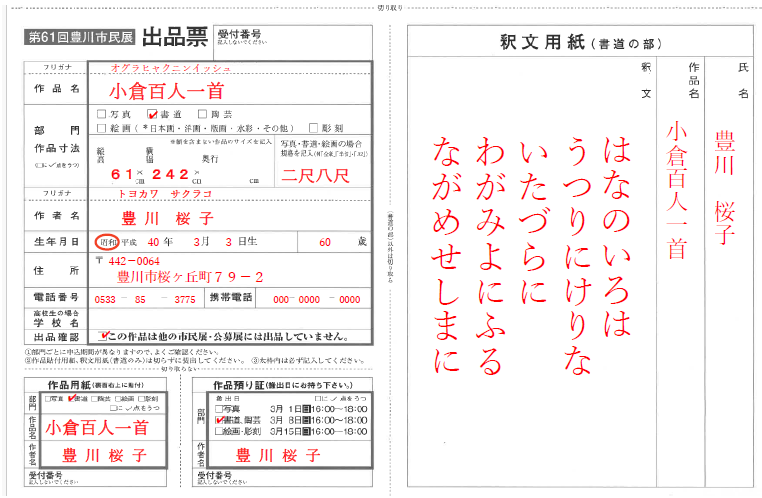 切り取り
第61回豊川市民展 出品票
受付番号
記入しないでください
フリガナ オグラヒャクニンイッシュ
作品名 小倉百人一首
部門 □写真 ☑書道 □陶芸
□絵画(*日本画・洋画・版画・水彩・その他) □彫刻
作品寸法
(□に✓点をつう)
*額を含まない作品のサイズを記入
縦 高 横 幅 奥行
61 × cm 242 × cm cm
写真・書道・絵画の場合
二尺八尺
フリガナ トヨカワ サクラコ
作者名 豊川 桜子
生年月日 昭和 平成 40年 3月 3日生 60歳
住所 〒442-0064
豊川市桜ヶ丘町79-2
電話番号 0533 - 85 - 3775 携帯電話 000-0000-0000
高校生の場合
学校名
出品確認 ☑この作品は他の市民展・公募展には出品していません。
①部門ごとに申込期間が異なりますので、よくご確認ください。
②作品貼付用紙、釈文用紙(書道のみ)は切らずに提出してください。 ③太枠内は必ず記入してください。
切り取らない
作品用紙(裏面右上に貼付)
部門 □写真 ☑書道 □陶芸 □絵画 □彫刻
□に✓点をうつ
作品名 小倉百人一首
作者名 豊川桜子
受付番号
記入しないでください
作品預り証(搬出日にお持ち下さい。)
部門 搬出日 □に✓点をうつ
□写真 3月 1日日16:00~18:00
☑書道、陶芸 3月 8日日16:00~18:00
□絵画・彫刻 3月15日日16:00~18:00
作者名 豊川桜子
受付番号
記入しないでください
(書道の部)以外は切り取る
釈文用紙(書道の部)
氏名 豊川 桜子
作品名 小倉百人一首
釈文
はなのいろは
うつりにけりな
いたづらに
わがみよにふる
ながめせしまに